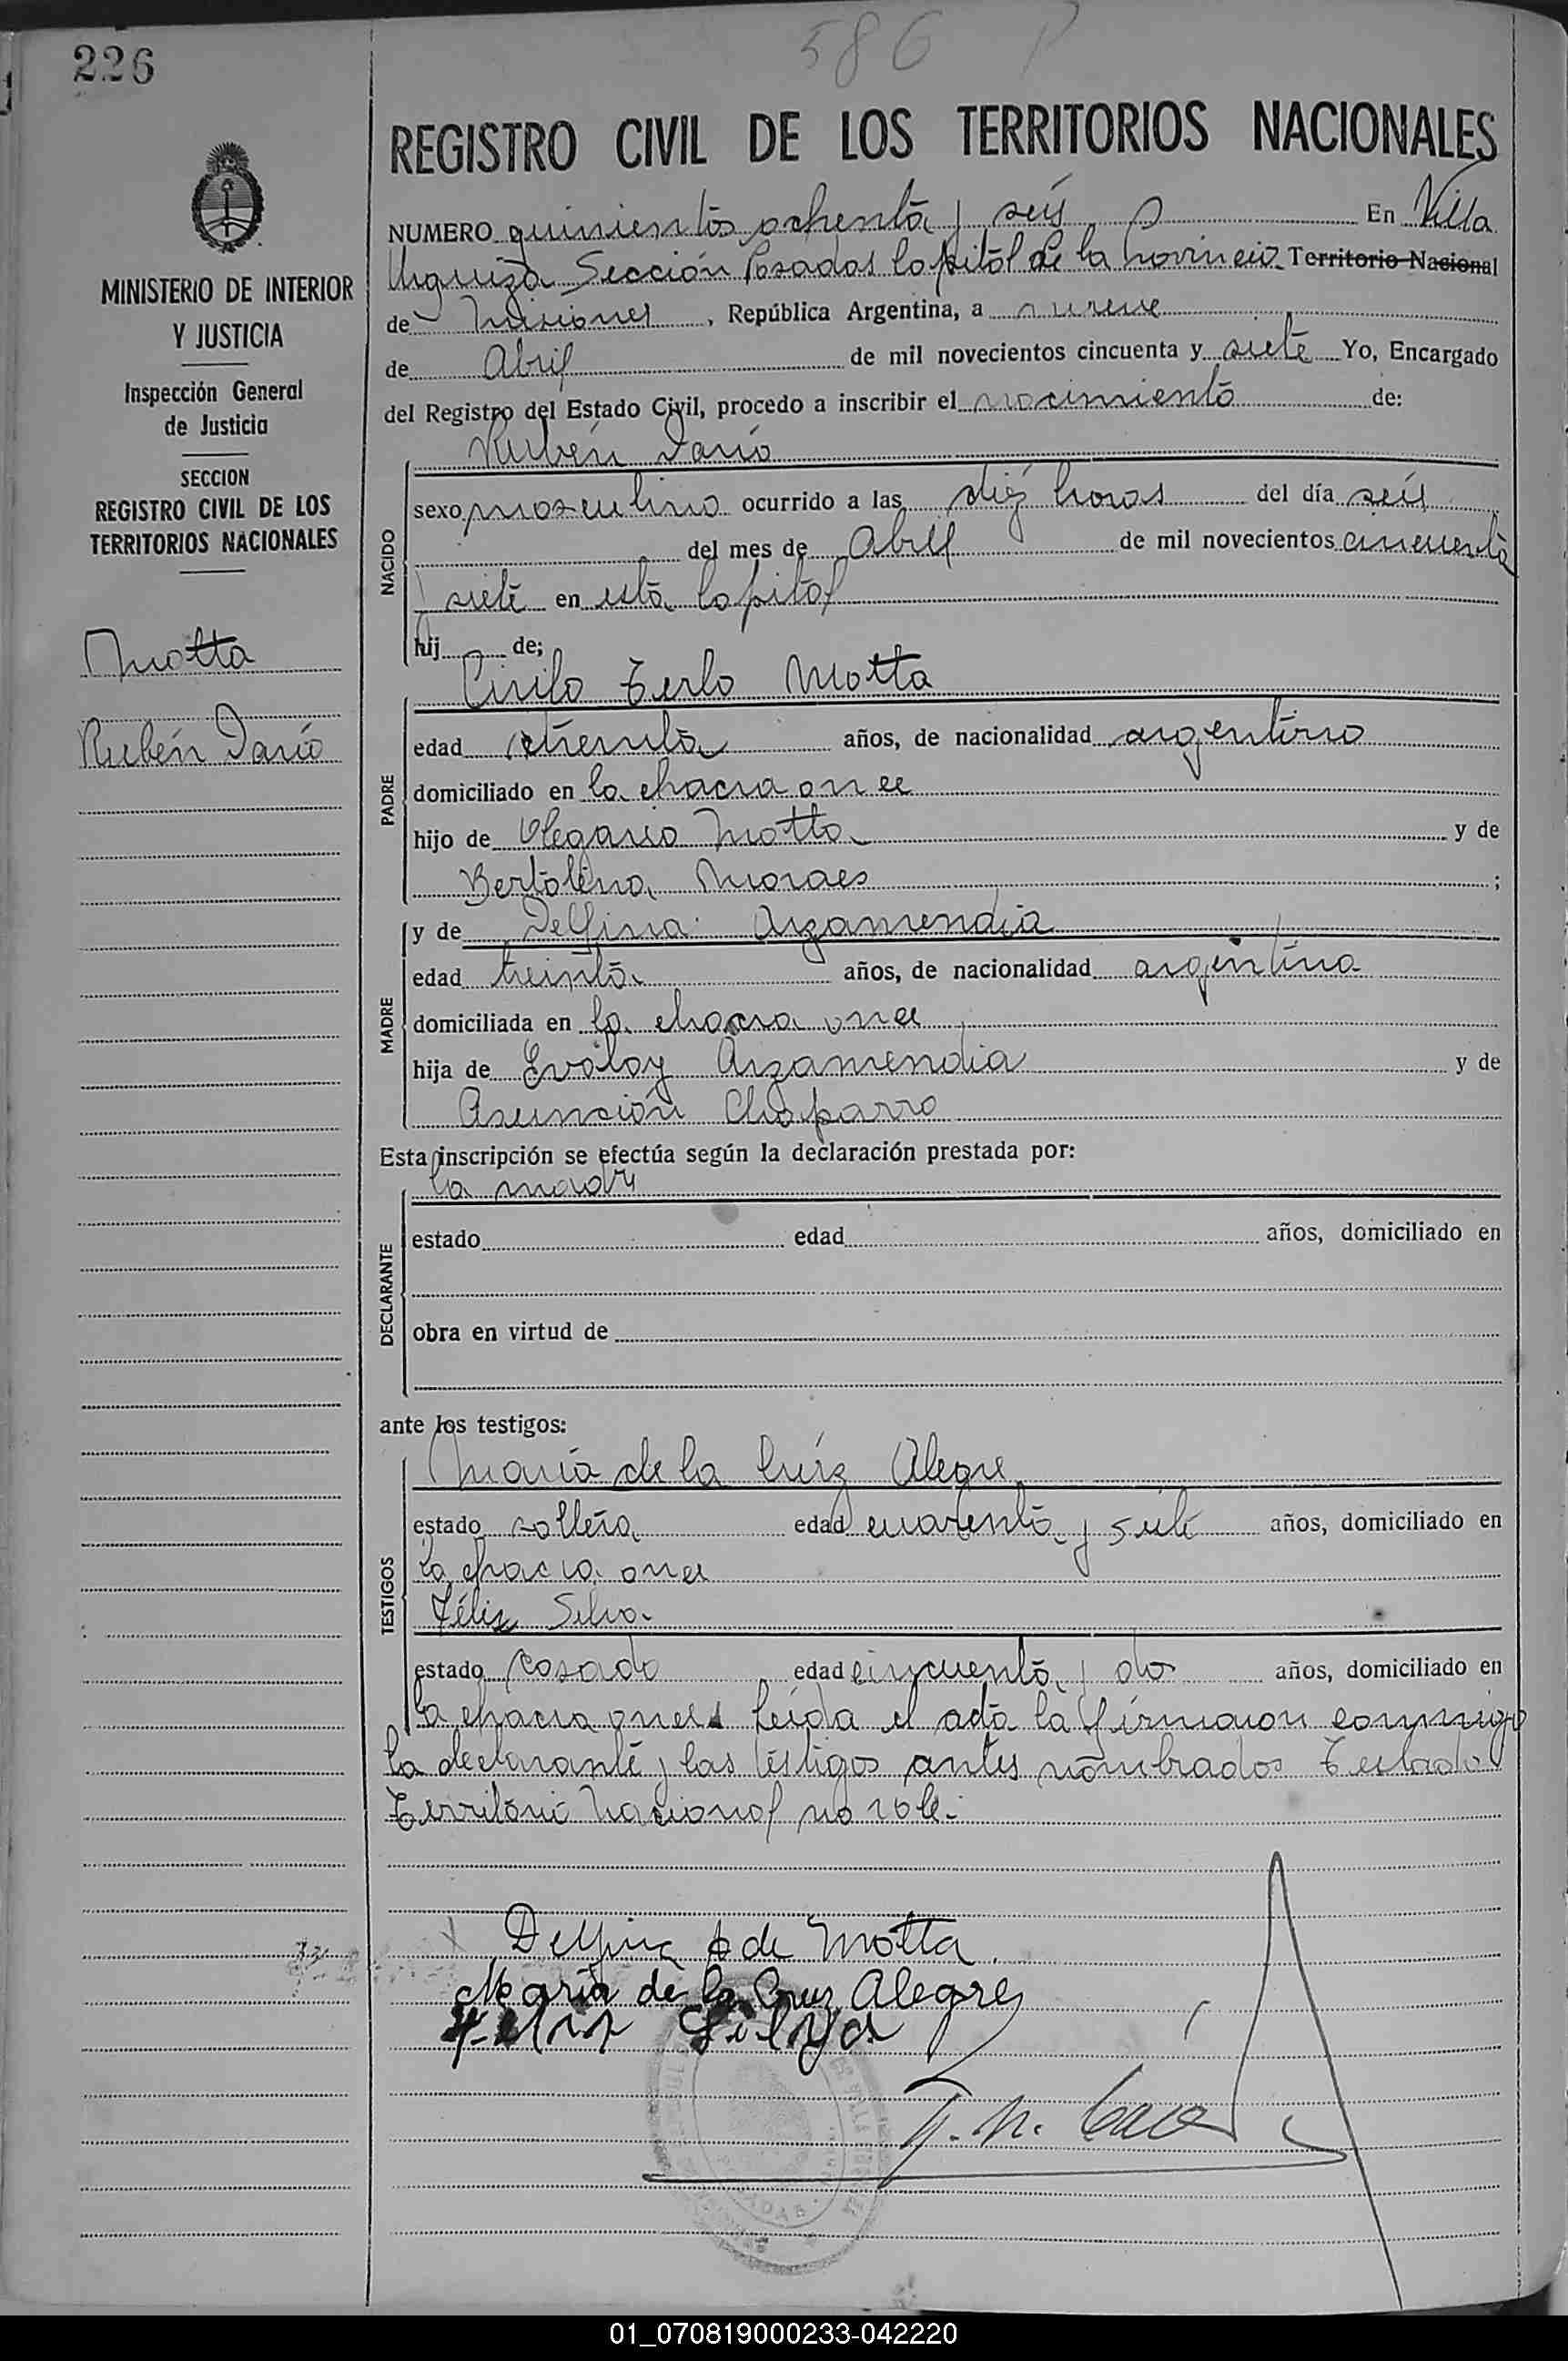 226
586 P
MINISTERIO DE INTERIOR
Y JUSTICIA
Inspección General
de Justicia
SECCION
REGISTRO CIVIL DE LOS
TERRITORIOS NACIONALES
Motta
Rubén Darío
REGISTRO CIVIL DE LOS TERRITORIOS NACIONALES
NUMERO quinientos ochenta y seis En Villa
Urquiza Sección Posadas Capital de la Provincia Territorio Nacional
de Misiones, República Argentina, a nueve
de Abril de mil novecientos cincuenta y siete Yo, Encargado
del Registro del Estado Civil, procedo a inscribir el nacimiento de:
Rubén Darío
NACIDO
sexo masculino ocurrido a las diez horas del día seis
del mes de Abril de mil novecientos cincuenta
y siete en esta Capital
hij de;
Cirilo Terlo Motta
PADRE
edad treinta años, de nacionalidad argentino
domiciliado en la chacra once
hijo de Olegario Motta y de
Bertolina Moraes ;
MADRE
y de Delfina Arzamendia
edad treinta años, de nacionalidad argentina
domiciliada en la chacra once
hija de Evoloy Arzamendia y de
Asunción Chaparro
Esta inscripción se efectúa según la declaración prestada por:
la madre
DECLARANTE
estado edad años, domiciliado en
obra en virtud de
ante los testigos:
TESTIGOS
María de la Cruz Alegre
estado soltera edad cuarenta y siete años, domiciliado en
la chacra once
Félix Silva
estado casado edad cincuenta y dos años, domiciliado en
la chacra once. Leída el acta la firmaron conmigo
la declarante y los testigos antes nombrados Testado
Territorio Nacional no vale.-
Delfina A de Motta
María de la Cruz Alegre
Felix Silva
01_070819000233-042220